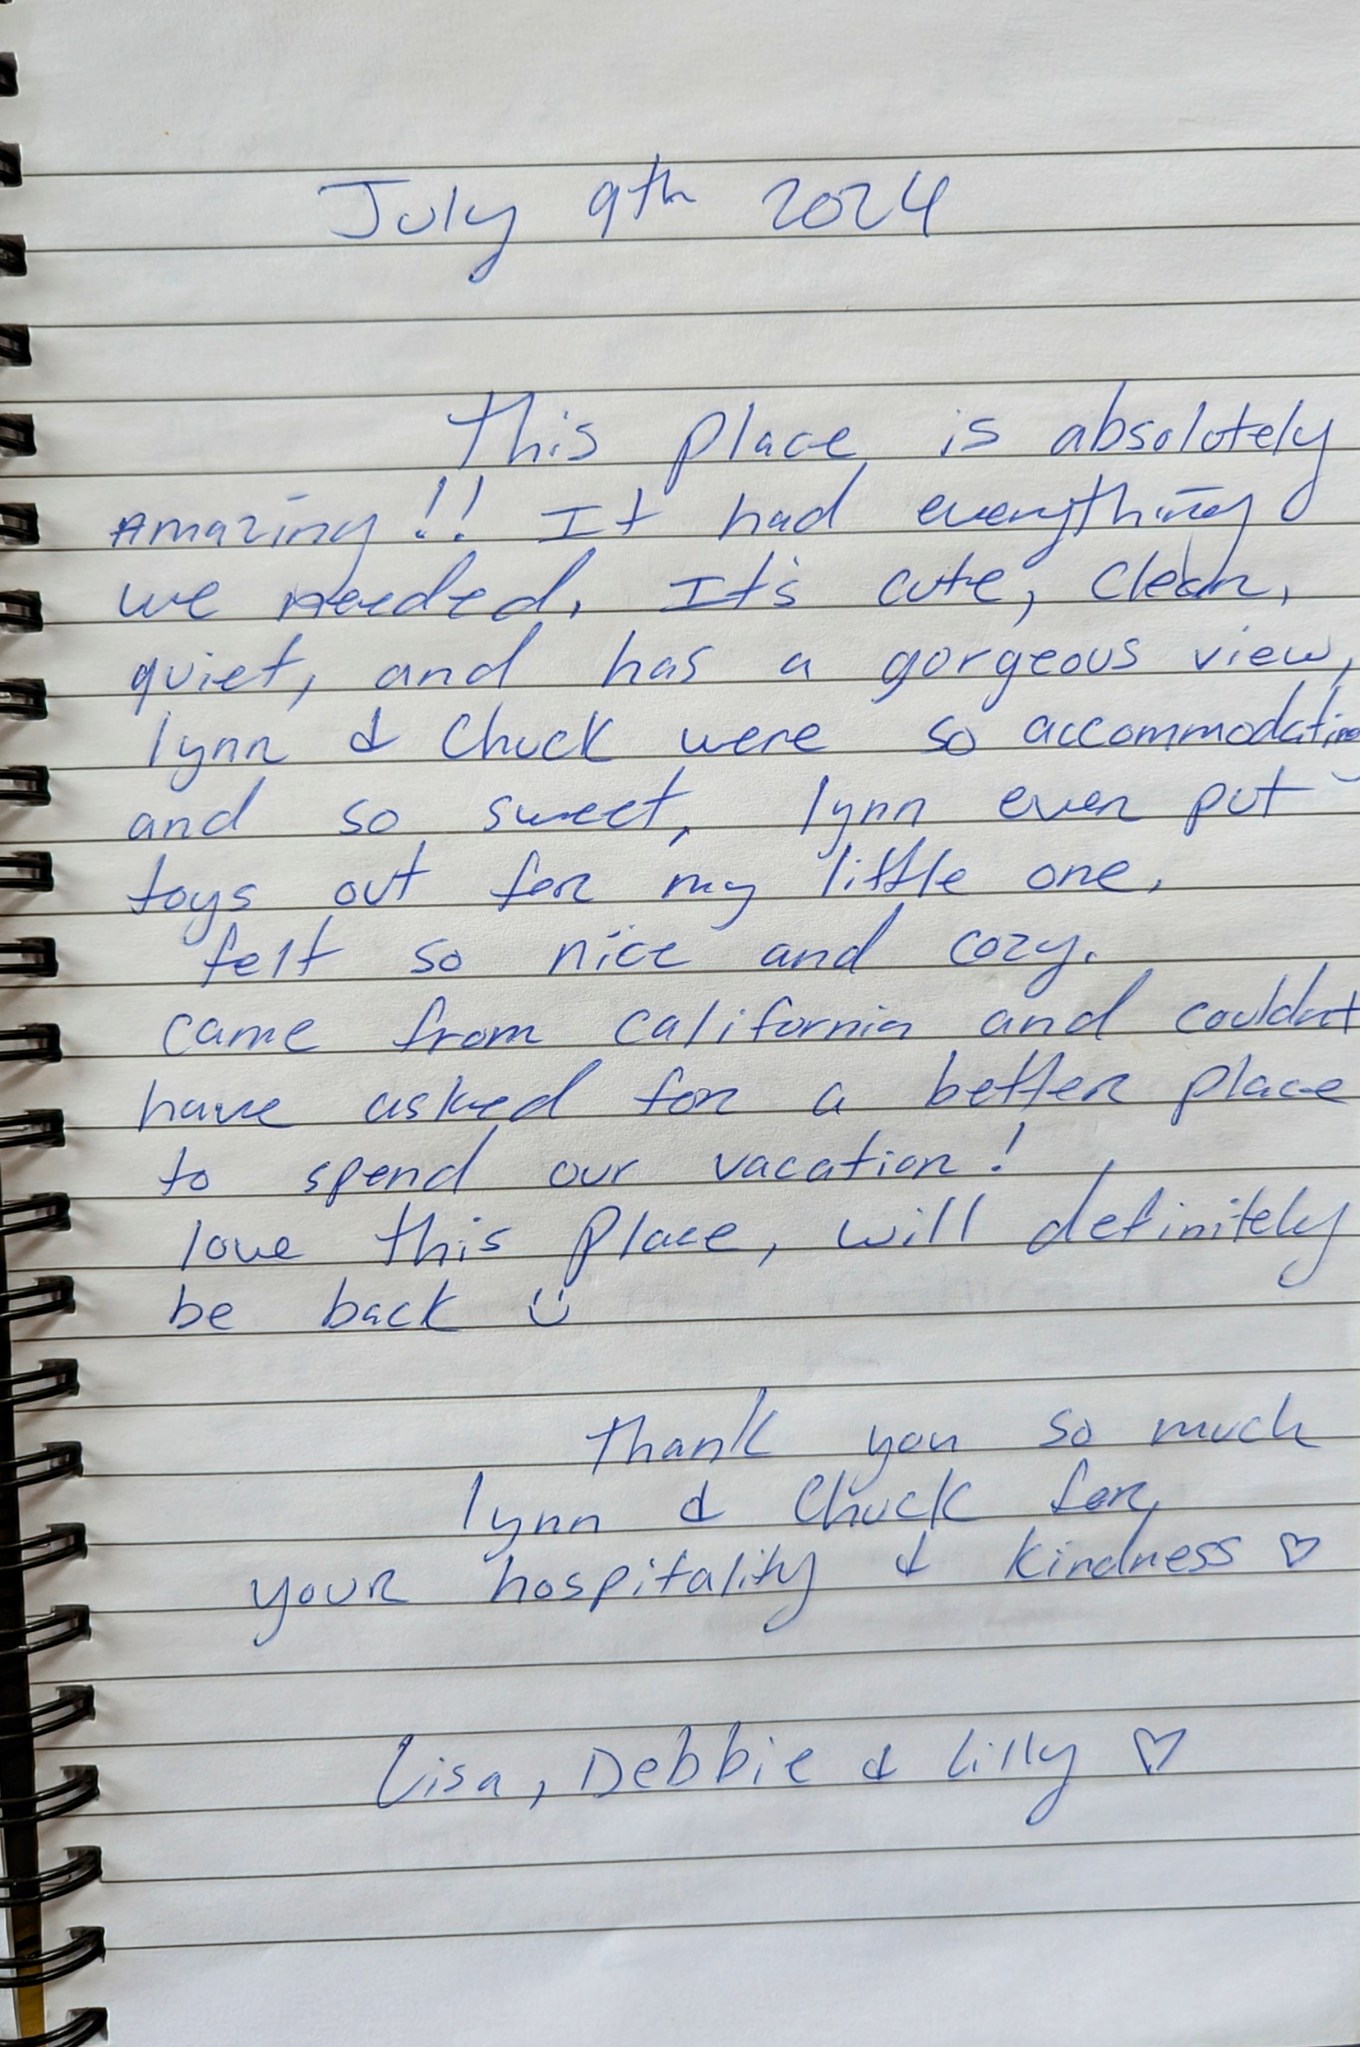 July 9th 2024
This place is absolutely
Amazing!! It had everything
we needed. It's cute, clean,
quiet, and has a gorgeous view,
lynn & Chuck were so accommodating
and so sweet, lynn even put
toys out for my little one.
felt so nice and cozy.
came from california and couldnt
have asked for a better place
to spend our vacation!
love this place, will definitely
be back ☺
Thank you so much
lynn & Chuck for
your hospitality & kindness ♡
Lisa, Debbie & Lilly ♡